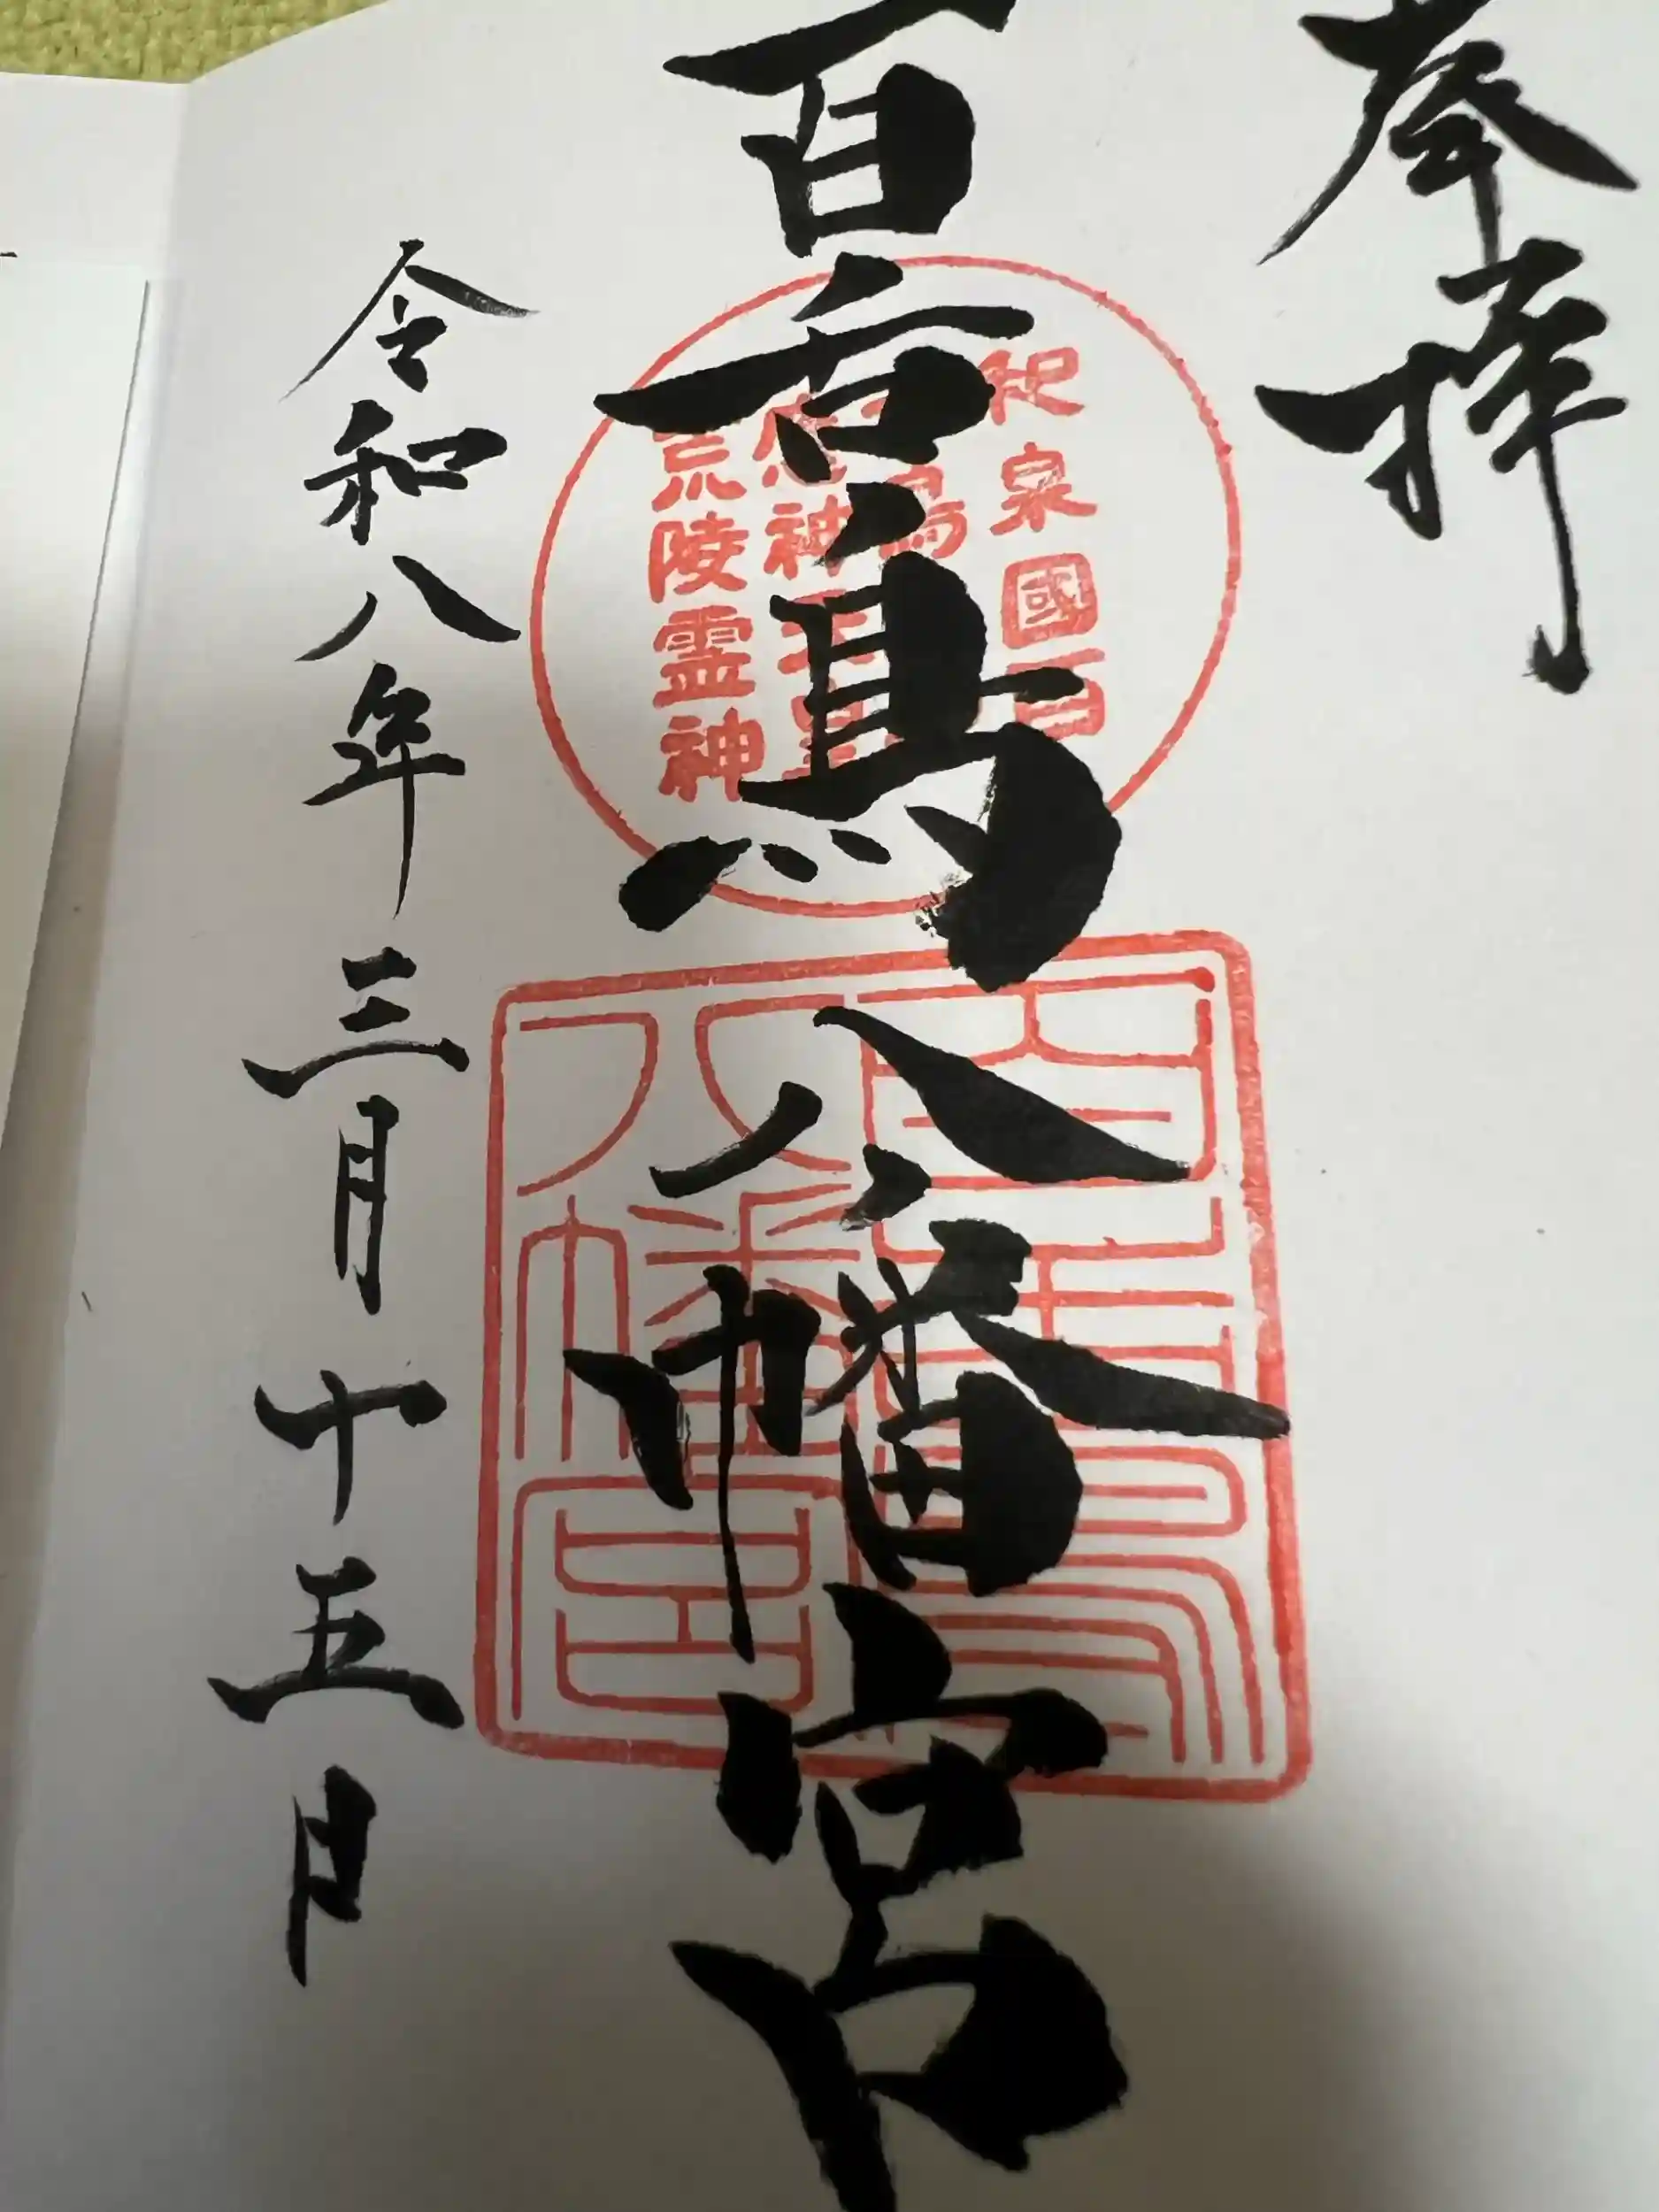 奉拝
百舌鳥八幡宮
泉國百
鳥
神
荒陵霊神
百舌鳥
八幡宮
令和八年三月十五日